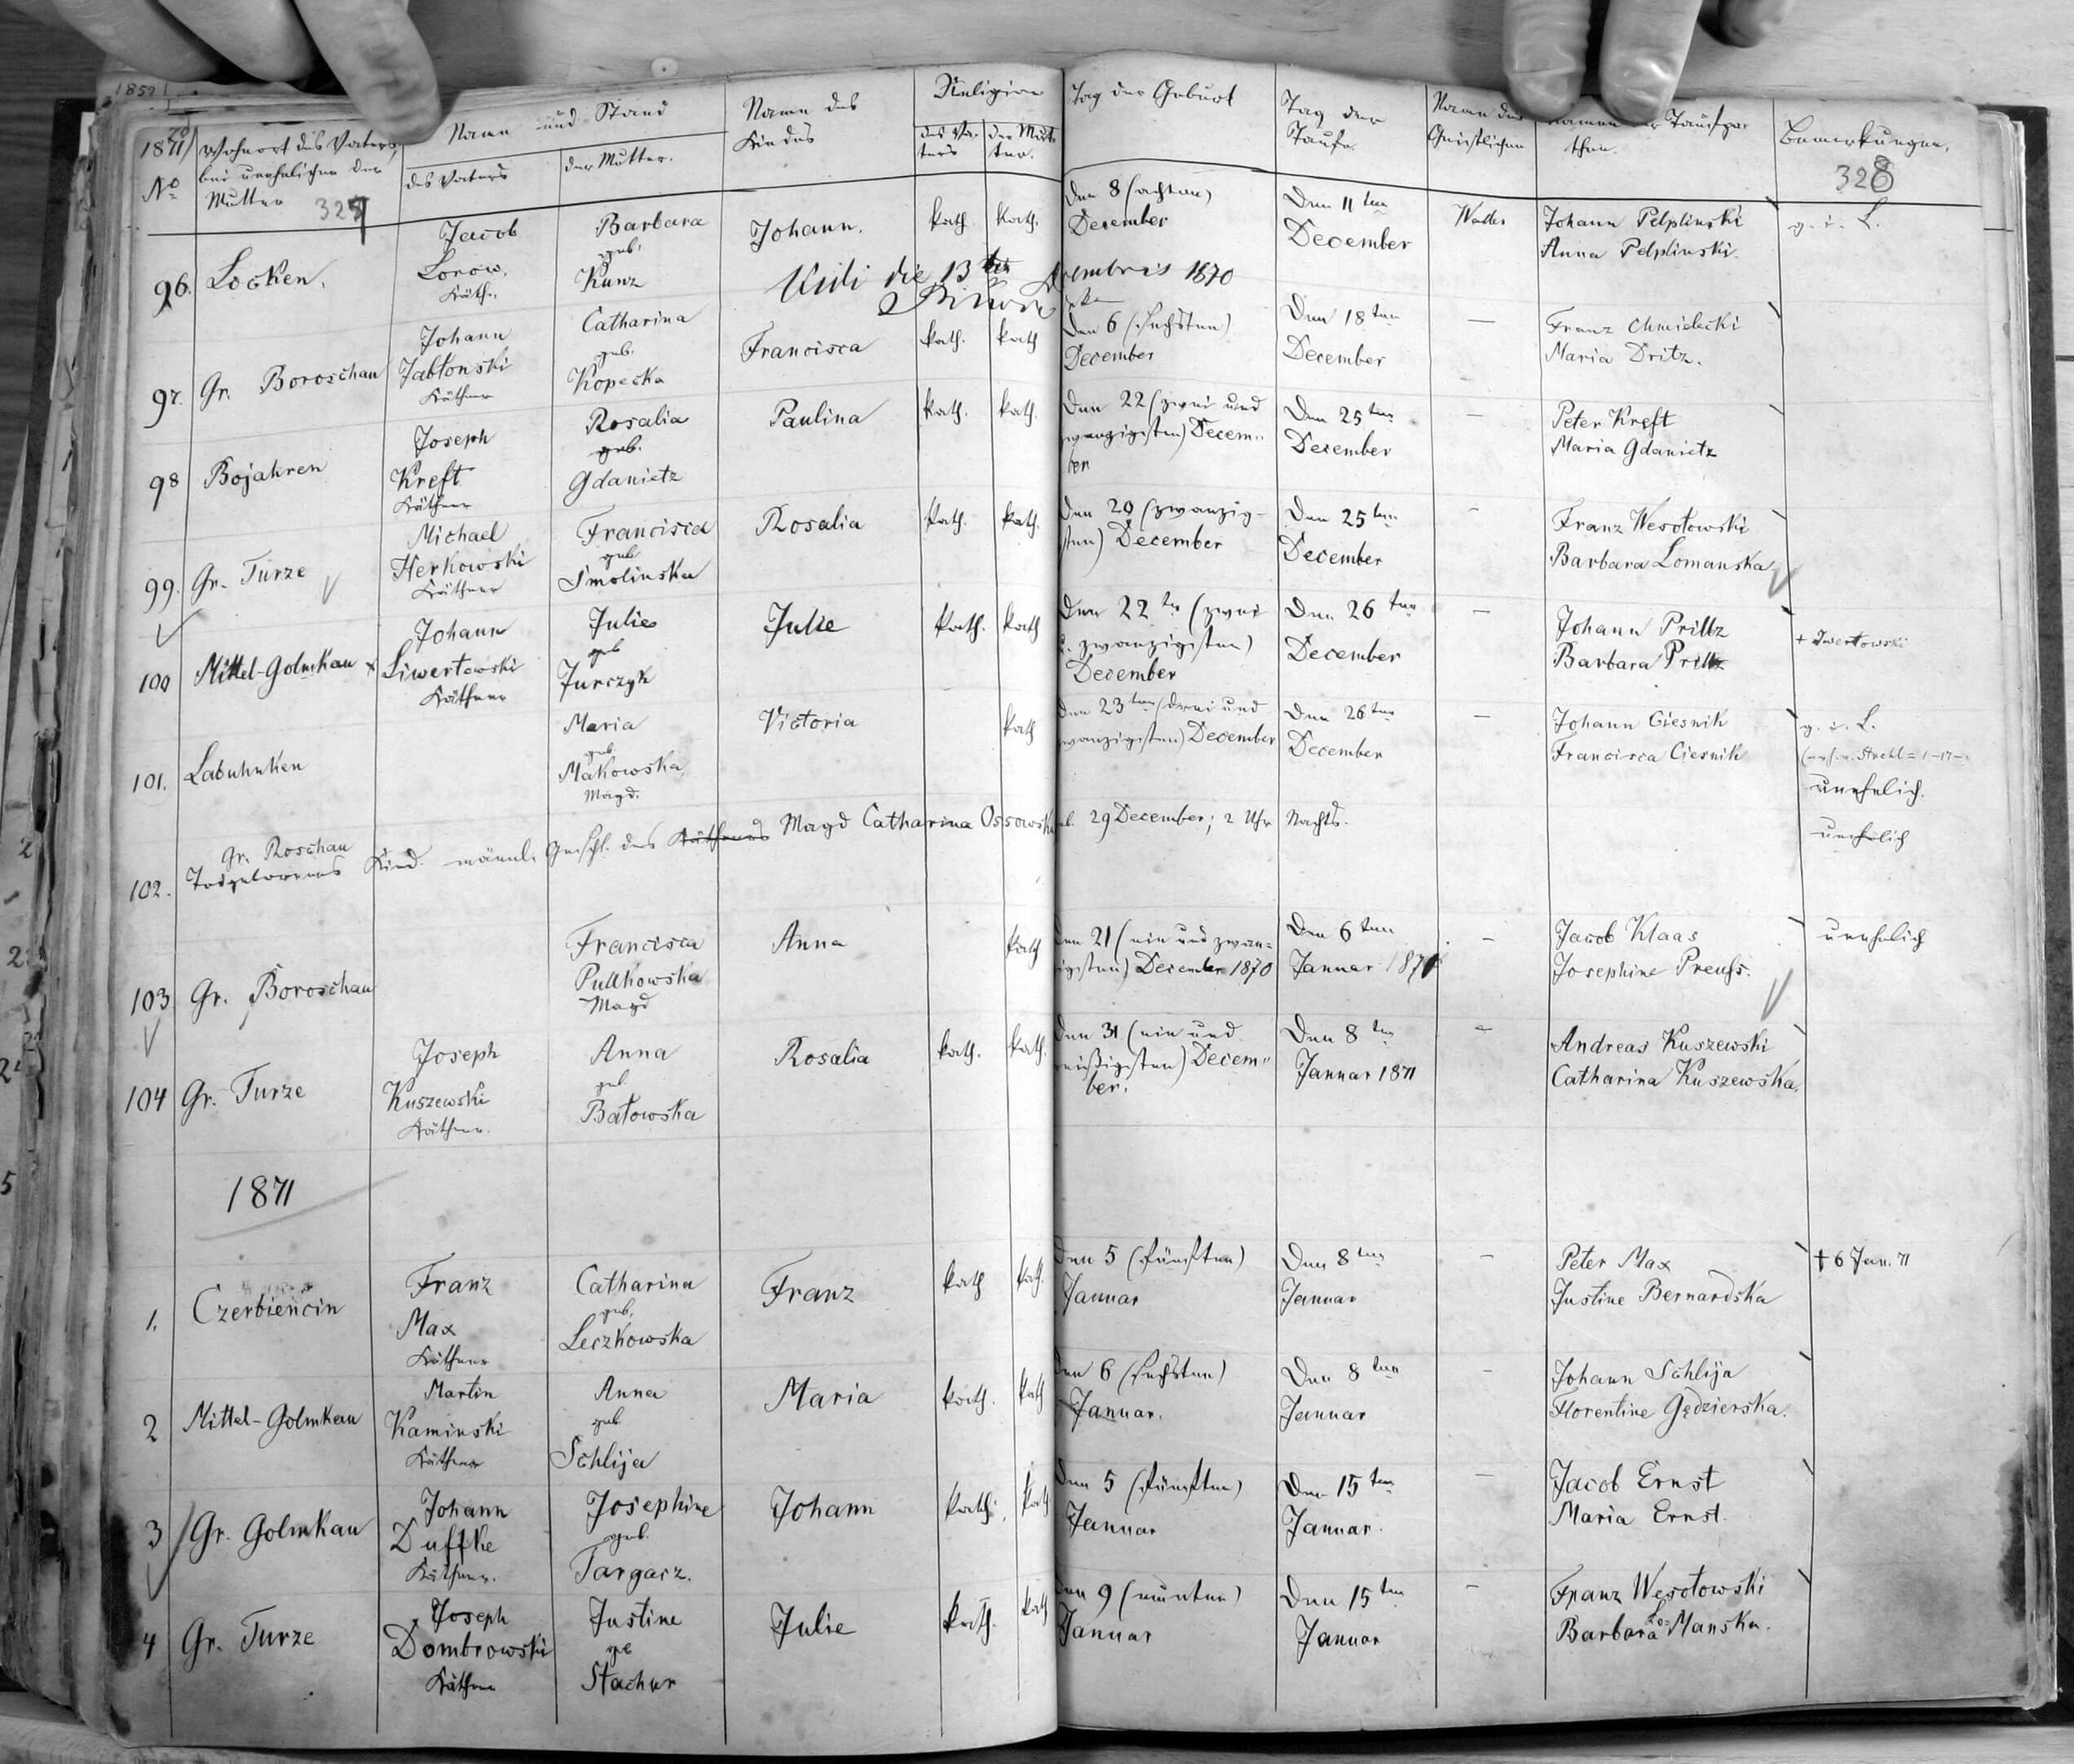 1871
No
Wohnort des Vaters,
bei unehelichen der
Mutter
327
Namen und Stand
des Vaters
der Mutter.
Name des
Kindes
Religion
des Va-
ters
der Mut-
ter.
Tag der Geburt
Tag der
Taufe.
Name des
Geistlichen
Namen der Taufpa-
then.
Bemerkungen.
328
96. Locken. Jacob Barbara Johann. kath. kath. Den 8 (achten) Den 11ten Johann Pelplinski g. i. L.
Lorow. geb. December December Anna Pelplinski.
Käthn. Kunz
Vidi die 13 Decembris 1870
97. Gr. Boroschau Johann Catharina Francisca kath. kath Den 6 (sechsten) Den 18ten — Franz Chmielecki
Jabłonski geb. December December Maria Dritz.
Käthner Kopecka
98 Bojahren Joseph Rosalia Paulina kath. kath. Den 22 (zwei und Den 25ten — Peter Kreft
Kreft geb. zwanzigsten) Decem- December Maria Gdanietz
Käthner Gdanietz ber
99. Gr. Turze Michael Francisca Rosalia kath. kath. Den 20 (zwanzig- Den 25ten - Franz Wesołowski
Herkowski geb sten) December December Barbara Lomanska
Käthner Smolinska
100 Mittel-Golmkau x Johann Julie Julie kath. kath Den 22ten (zwei Den 26ten — Johann Prillz
Siwertowski geb u. zwanzigsten) December Barbara Prillz
Käthner Jurczyk December
101. Labuhnken Maria Victoria kath Den 23ten (drei und Den 26ten — Johann Ciesnik g. i. L.
geb. zwanzigsten) December December Francisca Ciesnik
Makowska unehelich.
Magd.
102. Gr. Roschau
Todgeborenes Kind männl. Geschl. des Käthners Magd Catharina Ossowska geb. 29 December; 2 Uhr Nachts. unehelich
103 Gr. Boroschau Francisca Anna kath Den 21 (ein und zwan- Den 6ten — Jacob Klaas unehelich
Pulkowska zigsten) December 1870 Januar 1871 Josephine Preuss.
Magd
104 Gr. Turze Joseph Anna Rosalia kath. kath. Den 31 (ein und Den 8ten - Andreas Kuszewski
Kuszewski geb dreißigsten) Decem- Januar 1871 Catharina Kuszewska.
Käthner. Bałowska ber.
1871
1. Czerbiencin Franz Catharina Franz kath kath. Den 5 (fünften) Den 8ten - Peter Max † 6 Jan. 71
Max geb. Januar Januar Justine Bernardska
Käthner Leczkowska
2 Mittel-Golmkau Martin Anna Maria kath. kath Den 6 (sechsten) Den 8ten - Johann Schlija
Kaminski geb Januar. Januar Florentine Gędzierska.
Käthner Schlija
3 Gr. Golmkau Johann Josephine Johann kath. kath Den 5 (fünften) Den 15ten — Jacob Ernst
Duffke geb. Januar Januar. Maria Ernst.
Käthner. Targacz.
4 Gr. Turze Joseph Justine Julie kath. kath Den 9 (neunten) Den 15ten - Franz Wesołowski
Dombrowski geb Januar Januar Barbara Lo=Manska.
Käthner Stachur